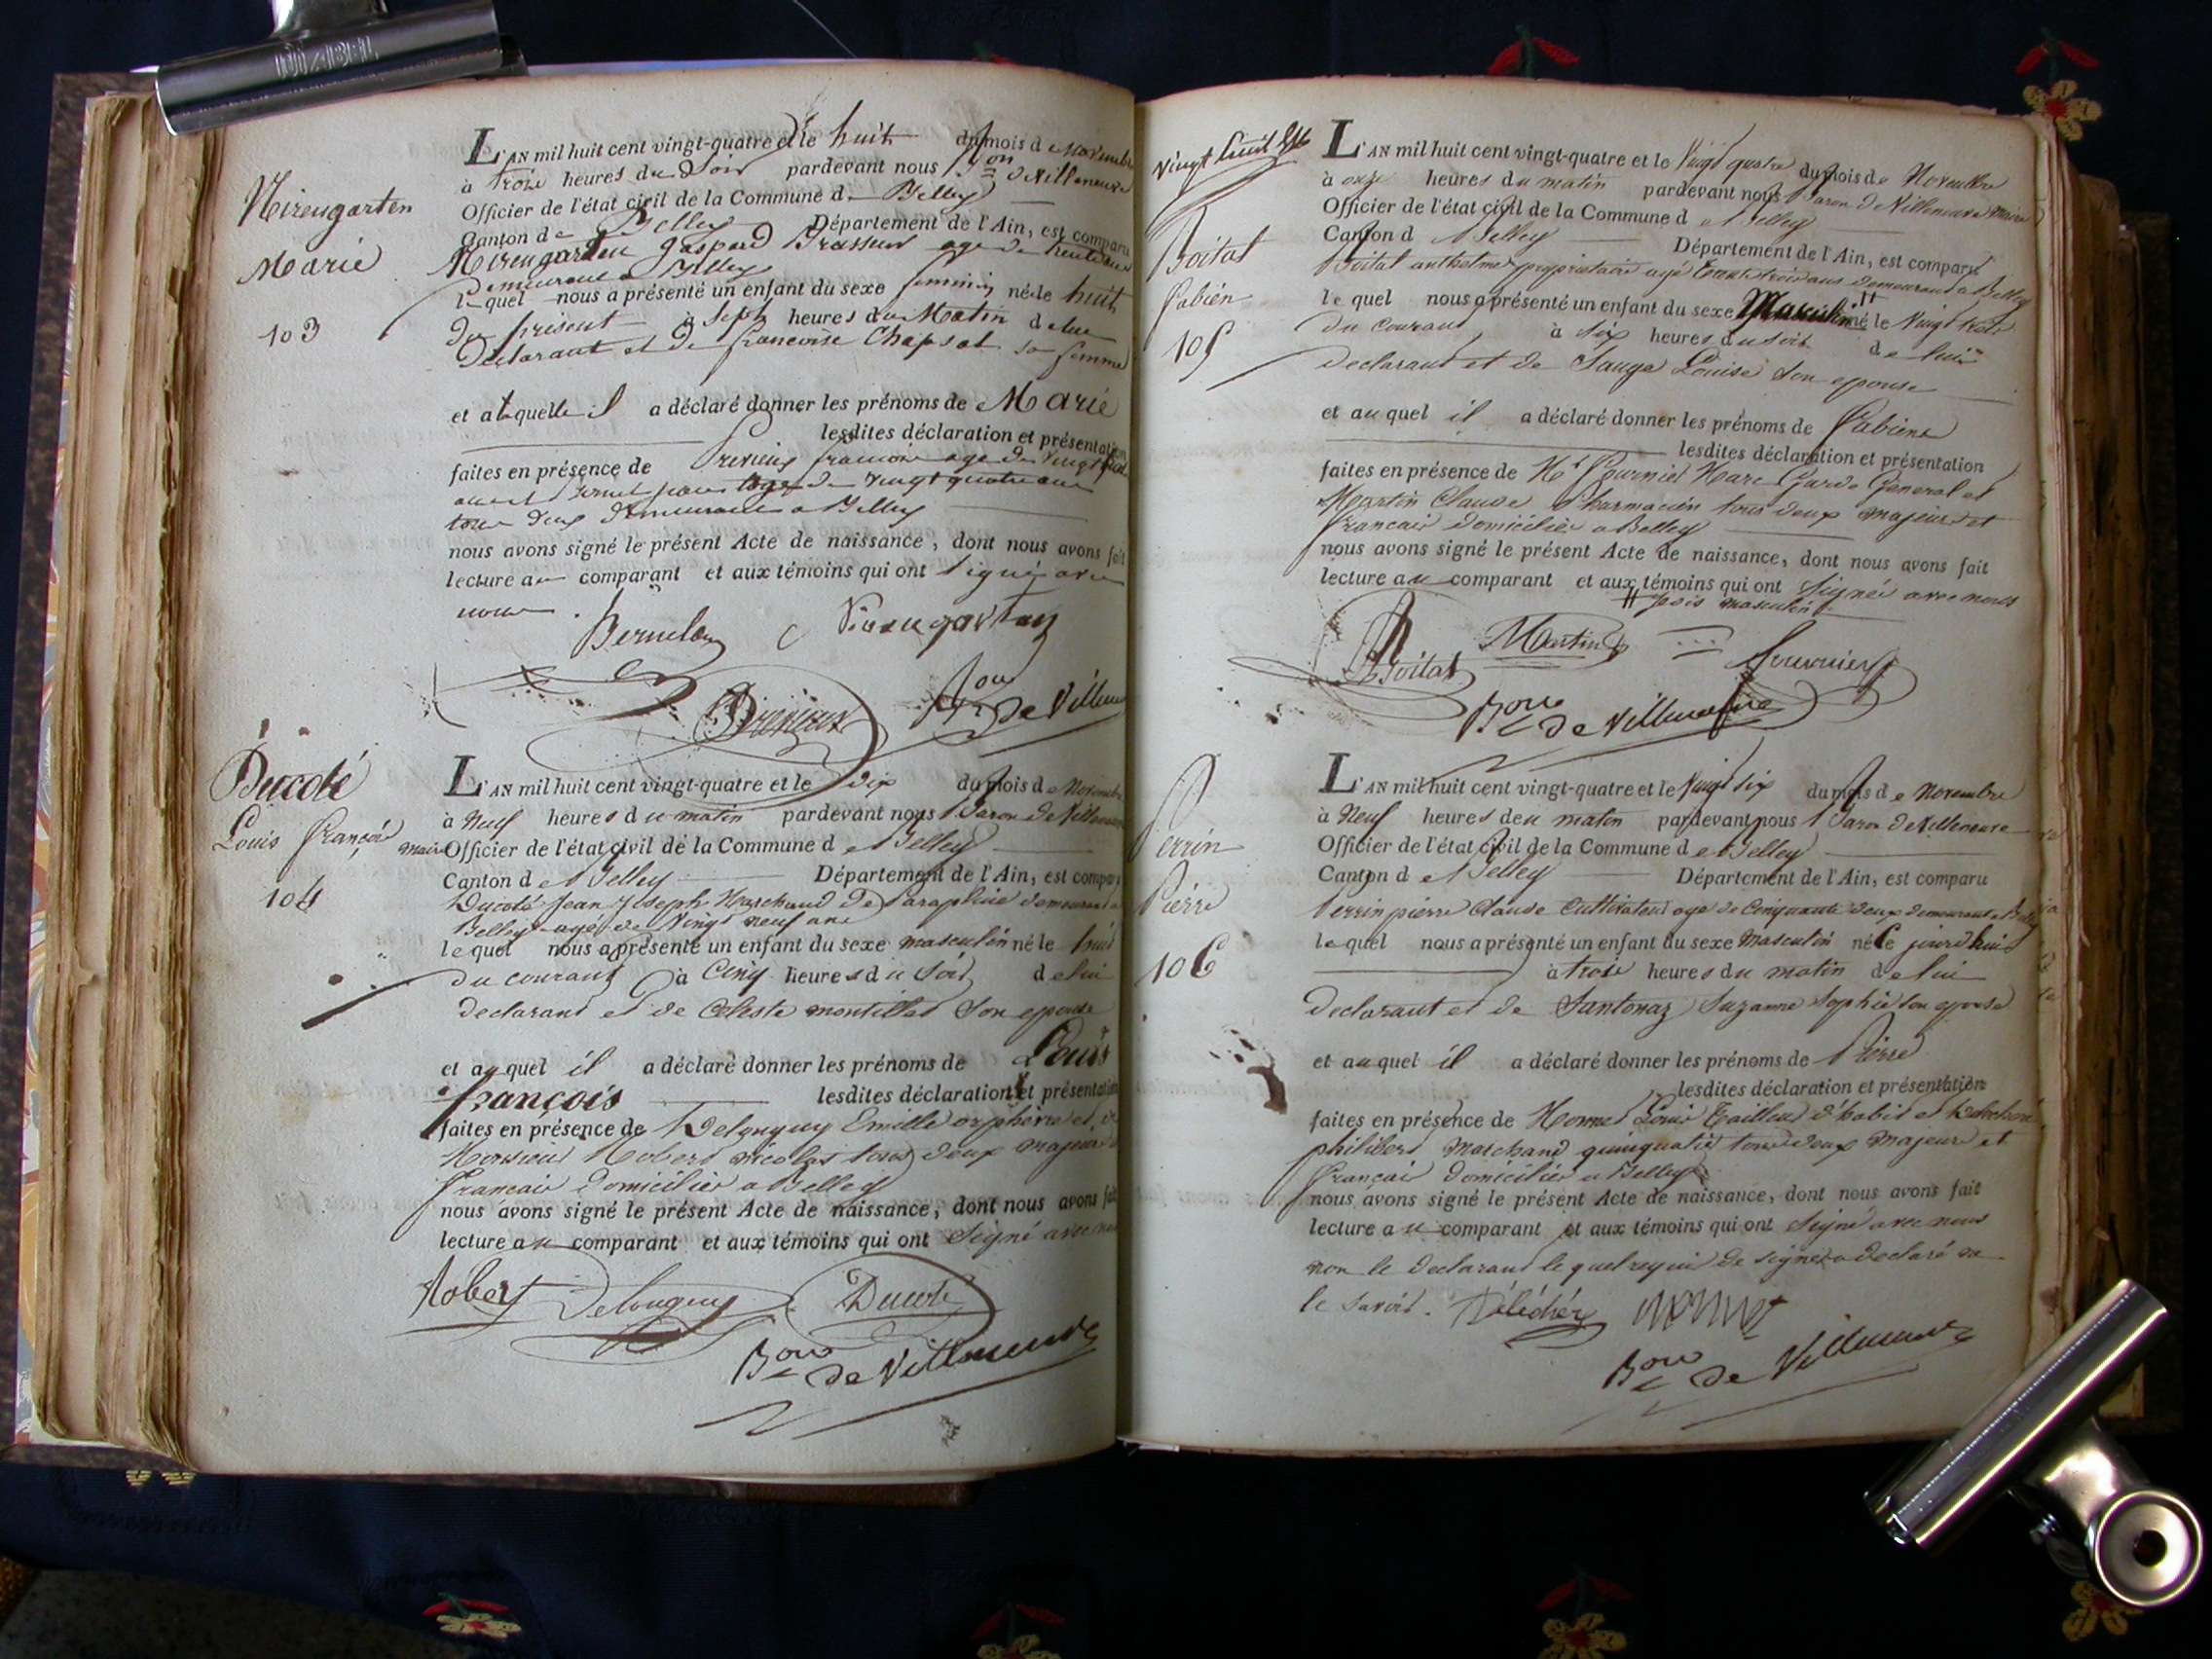 Nirengarten
Marie
103
L'AN mil huit cent vingt-quatre et le huit du mois de Novembre
à trois heures du Soir pardevant nous Bon de Villeneuve
Officier de l'état civil de la Commune de Belley
Canton de Belley Département de l'Ain, est comparu
Nirengarten Gaspard Brasseur age de trente ans
Demeurant a Belley
lequel nous a présenté un enfant du sexe feminin né le huit
du present à Sept heures du Matin de lui
Declarant et de francoise Chapsat sa femme
et a laquelle il a déclaré donner les prénoms de Marie
lesdites déclaration et présentation
faites en présence de age de vingt
age de vingt quatre ans
tous deux demeurant a Belley
nous avons signé le présent Acte de naissance, dont nous avons fait
lecture au comparant et aux témoins qui ont Signé avec
nous.
Nirengarten
Bon de Villeneuve
Ducoté
Louis françois
104
L'AN mil huit cent vingt-quatre et le dix du mois de Novembre
à Neuf heures du matin pardevant nous Baron de Villeneuve
maire Officier de l'état civil de la Commune de Belley
Canton de Belley Département de l'Ain, est comparu
Ducoté Jean Joseph Marchand De Parapluie demeurant a
Belley agé de Vingt neuf ans
lequel nous a présenté un enfant du sexe masculin né le huit
du courant à Cinq heures du Soir de lui
declarant et de Celeste montillet Son epouse
et auquel il a déclaré donner les prénoms de Louis
françois lesdites déclaration et présentation
faites en présence de Delonguy Emille orphevre et de
Monsieur Robert nicolas tous deux majeurs
francais domicilier a Belley
nous avons signé le présent Acte de naissance, dont nous avons fait
lecture au comparant et aux témoins qui ont Signé avec nous
Robert Delonguy Ducoté
Bon de Villeneuve
vingt huit
Boitat
fabien
105
L'AN mil huit cent vingt-quatre et le Vingt quatre du mois de Novembre
à onze heures du matin pardevant nous Baron de Villeneuve maire
Officier de l'état civil de la Commune de Belley
Canton de Belley Département de l'Ain, est comparu
Boitat anthelme propriétaire agé trente trois ans demeurant a Belley
lequel nous a présenté un enfant du sexe Masculin né le Vingt trois
du courant à Six heures du soir de lui
declarant et de Sauge Louise Son epouse
et auquel il a déclaré donner les prénoms de fabien
lesdites déclaration et présentation
faites en présence de Mr Fournier Marc Garde Général et
Martin Claude Pharmacien tous deux majeur et
francais domicilier a Belley
nous avons signé le présent Acte de naissance, dont nous avons fait
lecture au comparant et aux témoins qui ont Signé avec nous
masculin
Boitat Martin fournier
Bon de Villeneuve
Perrin
Pierre
106
L'AN mil huit cent vingt-quatre et le Vingt six du mois de Novembre
à Neuf heures de u matin pardevant nous Baron de Villeneuve
Officier de l'état civil de la Commune de Belley
Canton de Belley Département de l'Ain, est comparu
Perrin pierre Claude Cultivateur age de Cinquante deux demeurant a Belley
lequel nous a présenté un enfant du sexe Masculin né Ce jourd'hui
à trois heures du matin de lui
Declarant et de Santonaz Suzanne Sophie Son epouse
et auquel il a déclaré donner les prénoms de Pierre
lesdites déclaration et présentation
faites en présence de Louis Tailleur d'habit et
philibert Marchand quinquallier tous deux Majeur et
francais domicilier a Belley
nous avons signé le présent Acte de naissance, dont nous avons fait
lecture au comparant et aux témoins qui ont Signé avec nous
non le declarant le quel requis de signer a declaré ne
le savoir.
Bon de Villeneuve